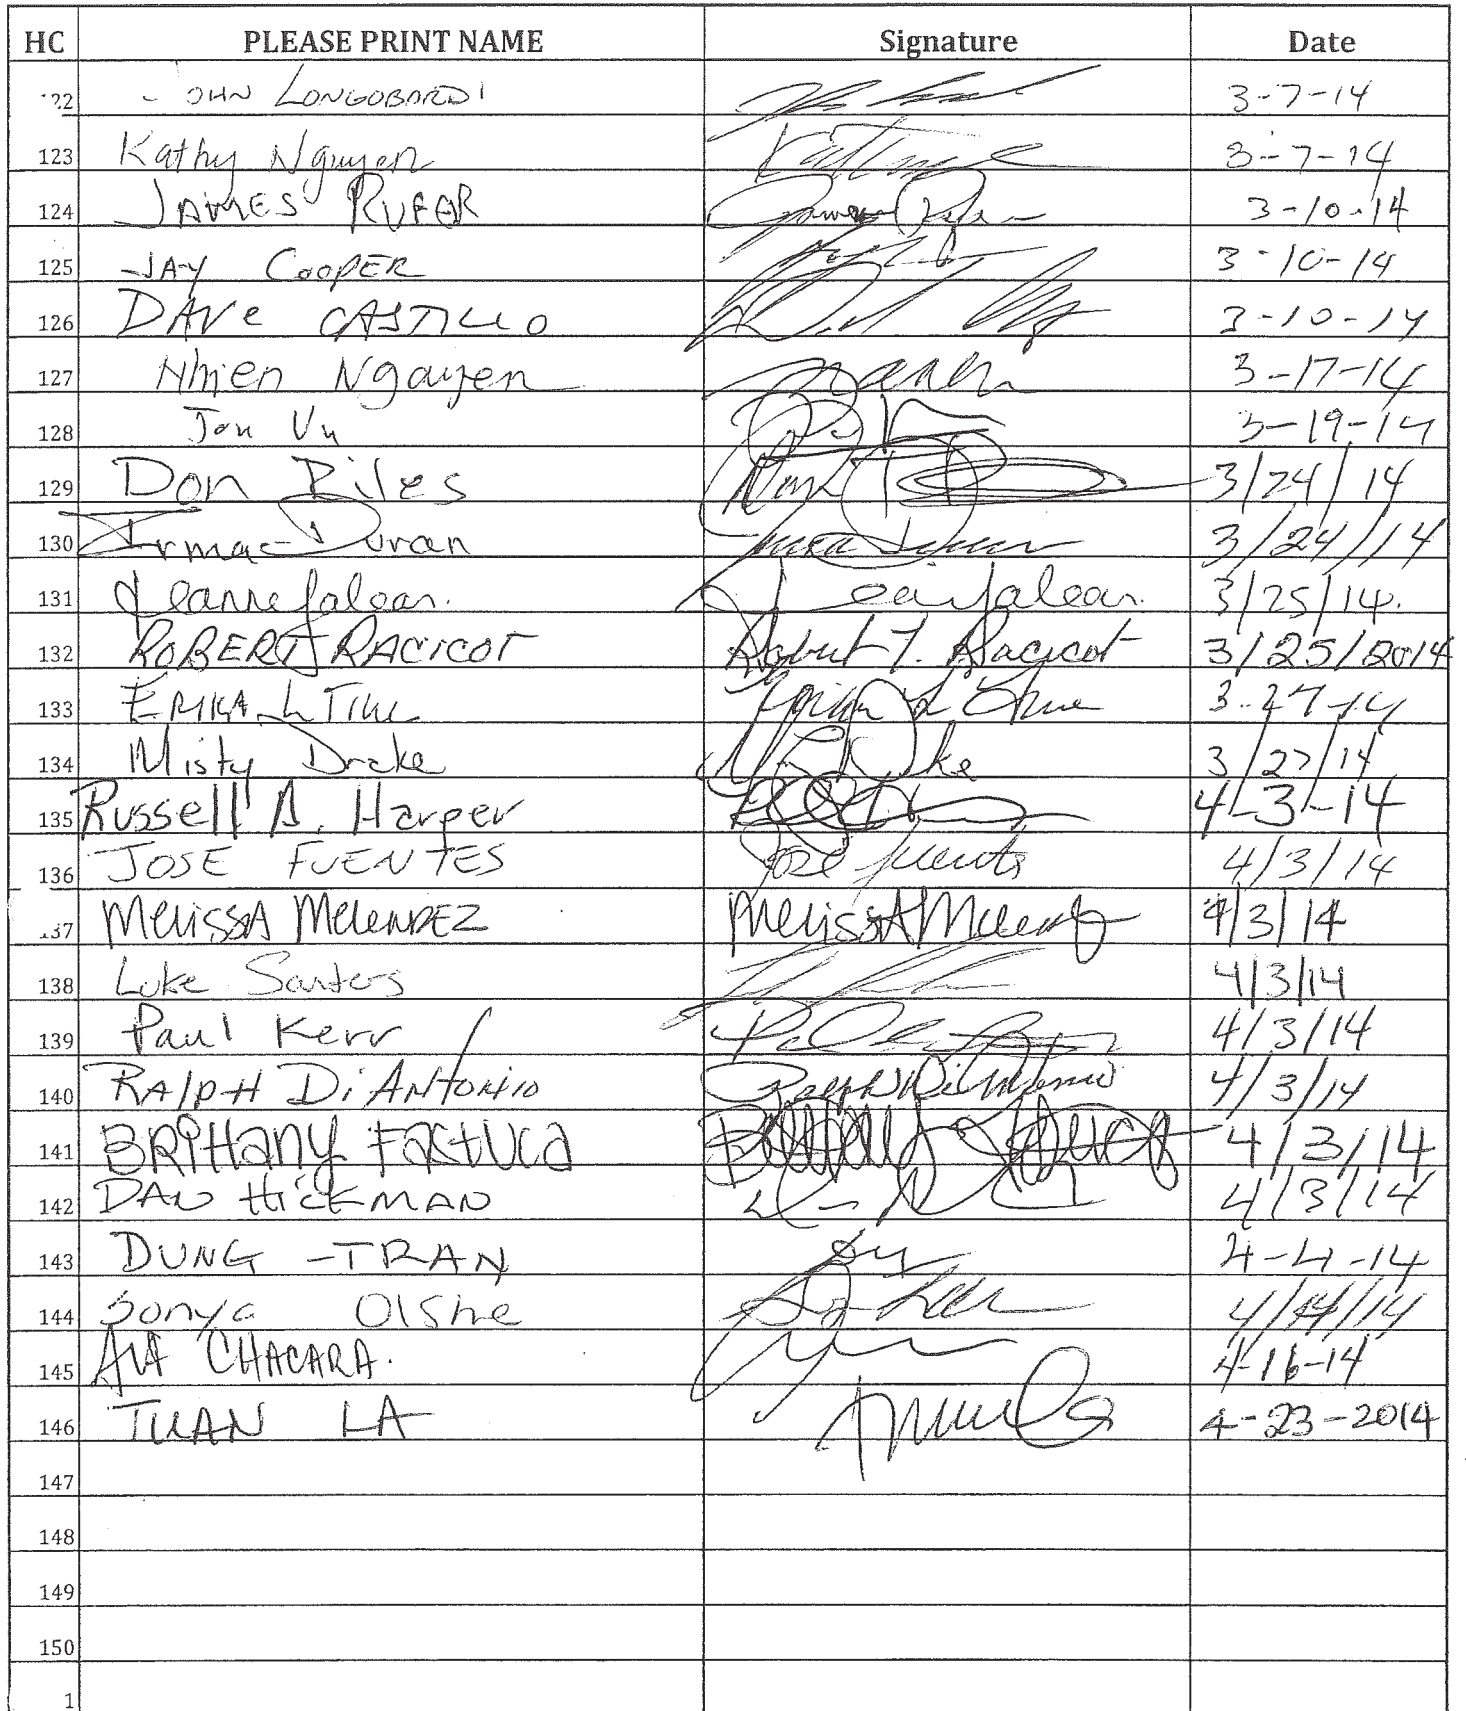 HC PLEASE PRINT NAME Signature Date
22 JOHN LONGOBARDI 3-7-14
123 Kathy Nguyen 3-7-14
124 JAMES RUFER 3-10-14
125 JAY COOPER 3-10-14
126 DAVe CASTILLO 3-10-14
127 Nhien Nguyen 3-17-14
128 Jon Vu 3-19-14
129 Don Piles Don 3/24/14
130 Irma Duran Irma Duran 3/24/14
131 Jeanne 3/25/14.
132 ROBERT J RACICOT Robert J. Racicot 3/25/2014
133 ERIKA L 3-27-14
134 Misty Drake 3/27/14
135 Russell A. Harper 4-3-14
136 JOSE FUENTES Jose Fuentes 4/3/14
137 MelissA MelenDEZ MelissA Melendez 4/3/14
138 Luke Santos 4/3/14
139 Paul Kerr 4/3/14
140 RAlpH DiANTONIO Ralph DiAntonio 4/3/14
141 BRittany Fastuca Brittany Fastuca 4/3/14
142 DAN HICKMAN 4/3/14
143 DUNG -TRAN 4-4-14
144 Sonya 4/14/14
145 CHACARA. 4-16-14
146 TUAN LA 4-23-2014
147
148
149
150
1